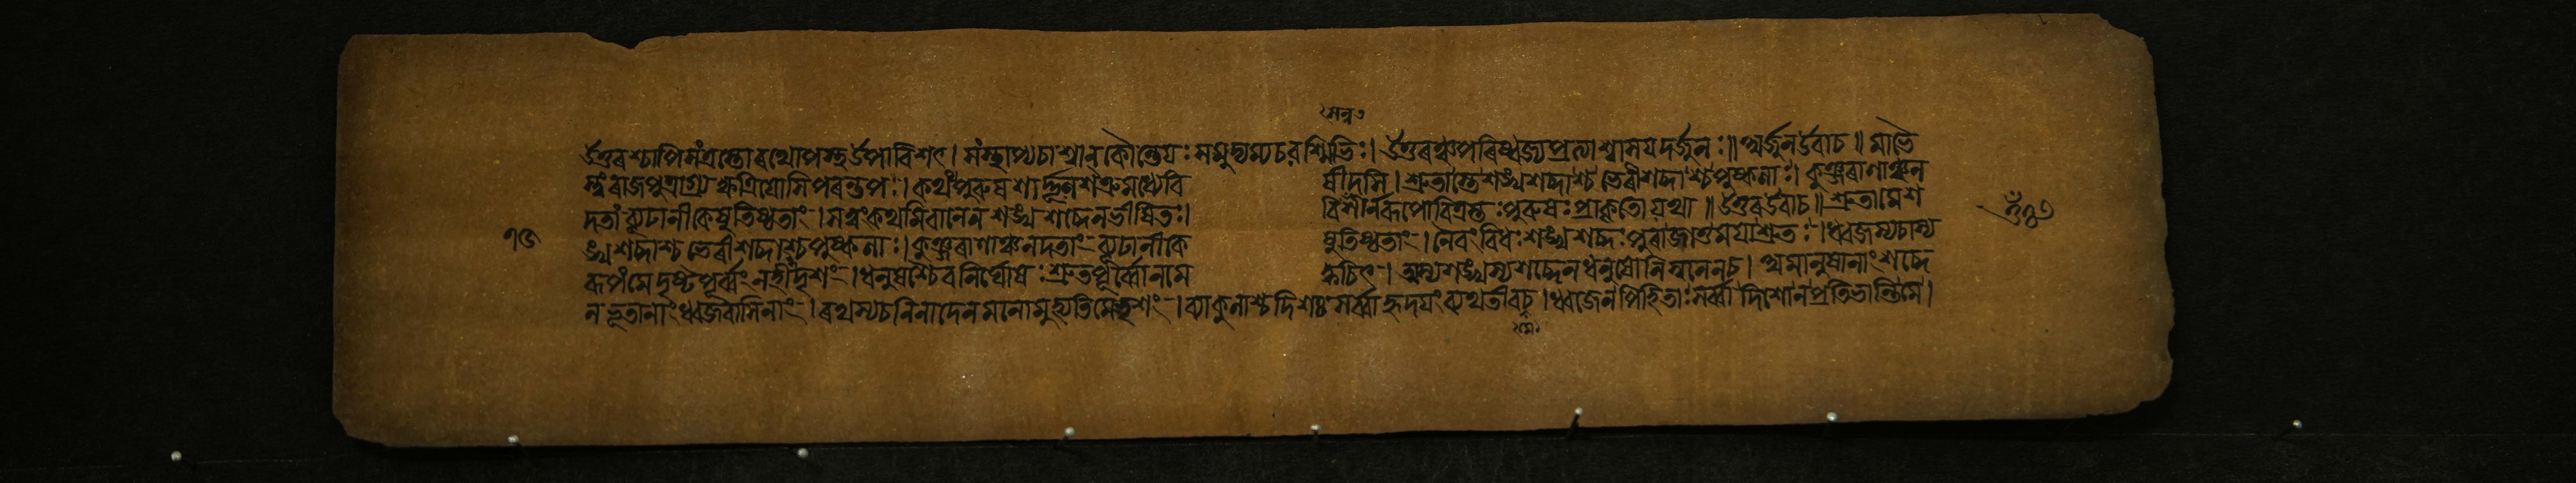 মন্ত্র
উত্তৰশ্চাপিসংত্রস্তোৰথোপস্থউপাবিশৎ। সংস্থাপ্যচাশ্বান্ কৌন্তেয়ঃ সমুদ্যম্যচৰশ্মিভিঃ। উত্তৰঞ্চপৰিষ্বজ্যপ্রত্যাশ্বাসয়দর্জুনঃ॥ অর্জুনউবাচ॥ মাভৈ
স্ত্বংৰাজপুত্রাগ্র্যক্ষত্রিয়োসিপৰন্তপঃ। কথংপুৰুষশার্দ্দূলশত্রুমধ্যেবি ষীদসি। শ্রুতাস্তেশঙ্খশব্দাশ্চ ভেৰীশব্দাশ্চপুষ্কলাঃ। কুঞ্জৰাণাঞ্চন
দতাং ব্যূঢানীকেষুতিষ্ঠতাং। সত্বংকথমিবানেনশঙ্খশব্দেনভীষিতঃ। বিশীর্ণৰূপোবিত্রস্তঃপুৰুষঃপ্রাকৃতোযথা॥ উত্তৰউবাচ॥ শ্রুতামেশ
৭৬ ঙ্খশব্দাশ্চ ভেৰীশব্দাশ্চপুষ্কলাঃ। কুঞ্জৰাণাঞ্চনদতাং ব্যূঢানীকে ষুতিষ্ঠতাং। নৈবংবিধঃশঙ্খশব্দঃপুৰাজাতুময়াশ্রুতঃ। ধ্বজস্যচাস্য
ৰূপংমেদৃষ্টপূর্ব্বংনহীদৃশং। ধনুষশ্চৈবনির্ঘোষঃশ্রুতপূর্ব্বোনমে ক্বচিৎ। অস্যশঙ্খস্যশব্দেনধনুষোনিস্বনেনচ। অমানুষানাংশব্দে
নভূতানাংধ্বজবাসিনাং। ৰথস্যচনিনাদেনমনোমুহ্যতিমেভৃশং। ব্যাকুলাশ্চদিশঃসর্ব্বাহৃদয়ংব্যথতীবচ। ধ্বজেনপিহিতাঃসর্ব্বাদিশোনপ্রতিভান্তিমে।
মে